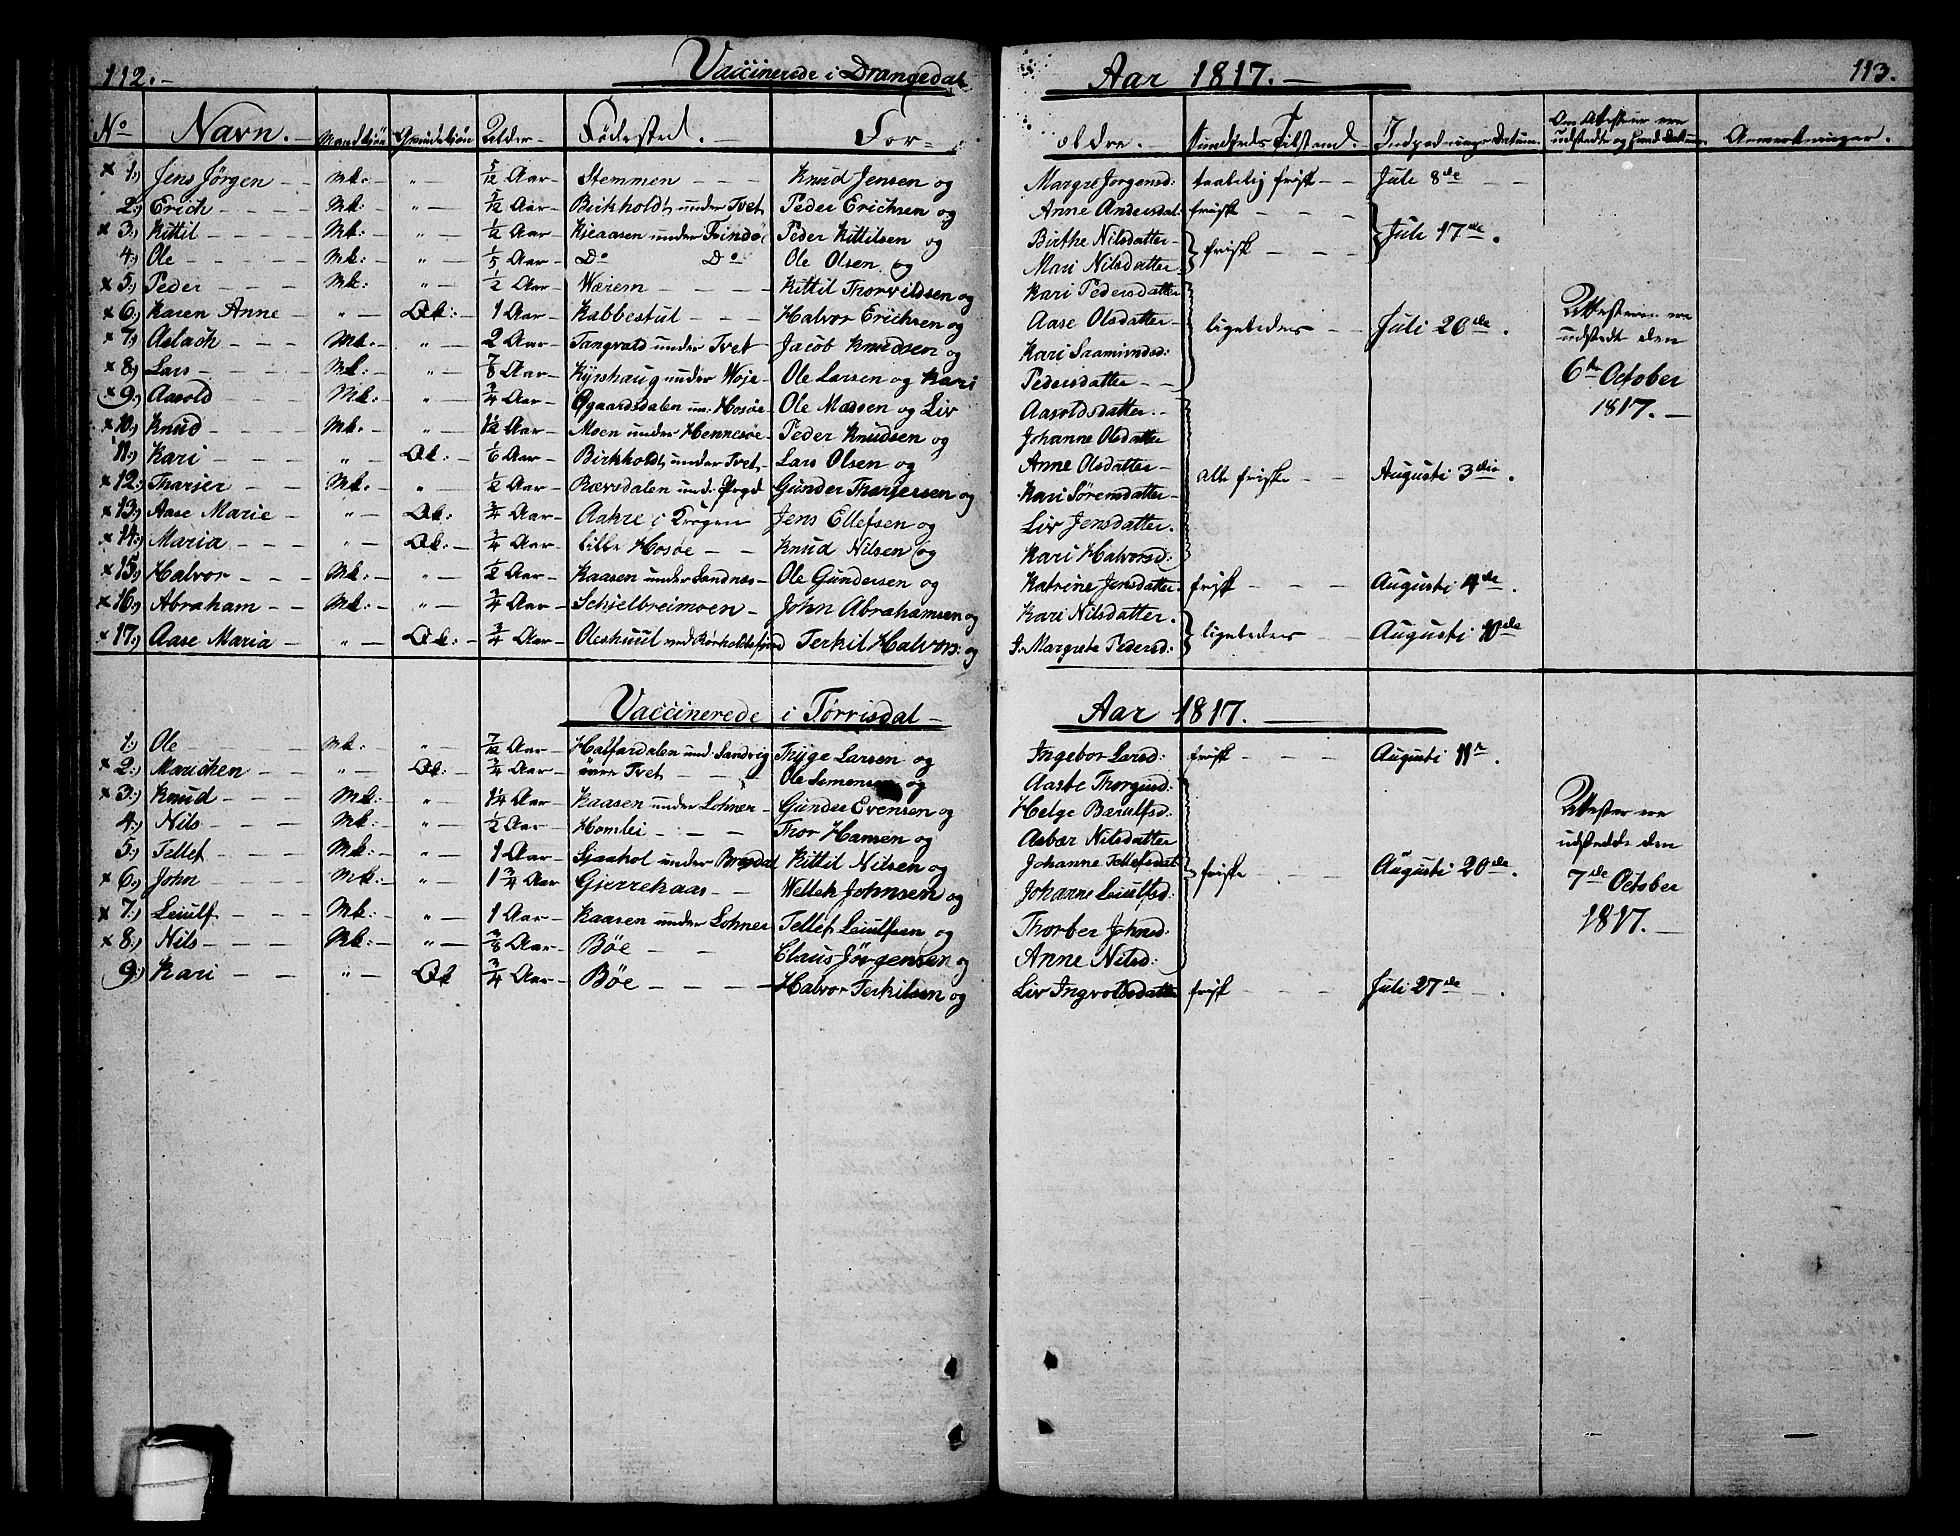 112. Vaccinerede i Drangedal Aar 1817. 113.
No Navn. Mandkjön Qvindekjön Alder Födested. For= ældre. Sundheds Tilstand. Indpodnings Datum. Om Attester ere udstedte og hvad Datum. Anmerkninger.
x 1.) Jens Jörgen Mk: " 5/12 Aar Stemmen Knud Jensen og Margrt Jörgensd: taalelig frisk Juli 8de
2.) Erich Mk: " Aar Birkholdt under Tvet Peder Erichsen og Anne Andersdat: frisk
x 3.) Kittil Mk: " Aar Kjeaasen under Peder Kittilsen og Birthe Nilsdatter frisk Juli 17de.
4.) Ole Mk: " 1/5 Aar Do Do Ole Olsen og Mari Nilsdatter
x 5.) Peder Mk: " 1/2 Aar Wærem Kittil Thorvildsen og Kari Pedersdatter
x 6.) Karen Anne " Qk: 1 Aar Kabbestul Halvor Erichsen og Aase Olsdatter ligeledes Juli 20de. Attesterne ere
x 7.) Aslach Mk: " 2 Aar Tangvald under Tvet Jacob Knudsen og Kari Saamundsd: udstedt den
x 8.) Lars Mk: " 7/8 Aar under Woje Ole Larsen og Kari Pedersdatter 6te October
x 9.) Aasold Mk: " 3/4 Aar Øgaardsdalen un: Hosøe Ole Madsen og Liv Aasoldsdatter. 1817.
x 10.) Knud Mk: " Aar Moen under Hennesøe Peder Knudsen og Johanne Olsdatter
11.) Kari " Qk: 1/6 Aar Birkholdt under Tvet Lars Olsen og Anne Olsdatter
x 12.) Tharjer Mk: " 1/2 Aar Rævsdalen und: Gunder Tharjersen og Kari Sörensdatter alle friske Augusti 3die.
x 13.) Aase Marie " Qk: 3/4 Aar Aakre i Jens Ellefsen og Liv Jensdatter.
x 14.) Maria " Qk: Aar Lille Hosøe Knud Nilsen og Kari Halvorsd:
x 15.) Halvor Mk: " 1/2 Aar Kaasen under Sandnes Ole Gundersen og Katrine Jensdatter frisk Augusti 4de.
x 16.) Abraham Mk: " 3/4 Aar Schjelbreimoen John Abrahamsen og Kari Nilsdatter.
x 17.) Aase Maria " Qk: 3/4 Aar ved Terkil Halvors: og Margrete Pedersd: ligeledes Augusti 10de
Vaccinerede i Törrisdal Aar 1817.
1.) Ole Mk: " 7/12 Aar Halfardalen und: Sandvig Thyge Larsen og Ingebor Larsd: frisk Augusti 11te.
x 2.) Marichen " Qk: 3/4 Aar Tvet Ole Simonsen og Aaste Thorgusd:
x 3.) Knud Mk: " 1 1/4 Aar Kaasen under Lohner Gunder Evensen og Helge Bæraltsd: Attester ere
4.) Nils Mk: " 1/2 Aar Homlei Tror Hansen og Asbær Nilsdatter udstedde den
5.) Tellef Mk: " 1 Aar under Kittil Nilsen og Johanne Tellefsdat: friske Augusti 20de.
x 6.) John Mk: " 1 3/4 Aar Gjerrekaas Wetleh Johnsen og Johanne Leiulfsd: 7de October
x 7.) Leiulf Mk: " 1 Aar Kaasen under Lohner Tellef Leiulfsen og Thorber Johnsd: 1817.
x 8.) Nils Mk: " Aar Bøe Claus Jörgensen og Anne Nilsd:
9.) Kari " Qk 3/4 Aar Bøe Halvor Terkilsen og Liv Ingvoldsdatter frisk Juli 27de.